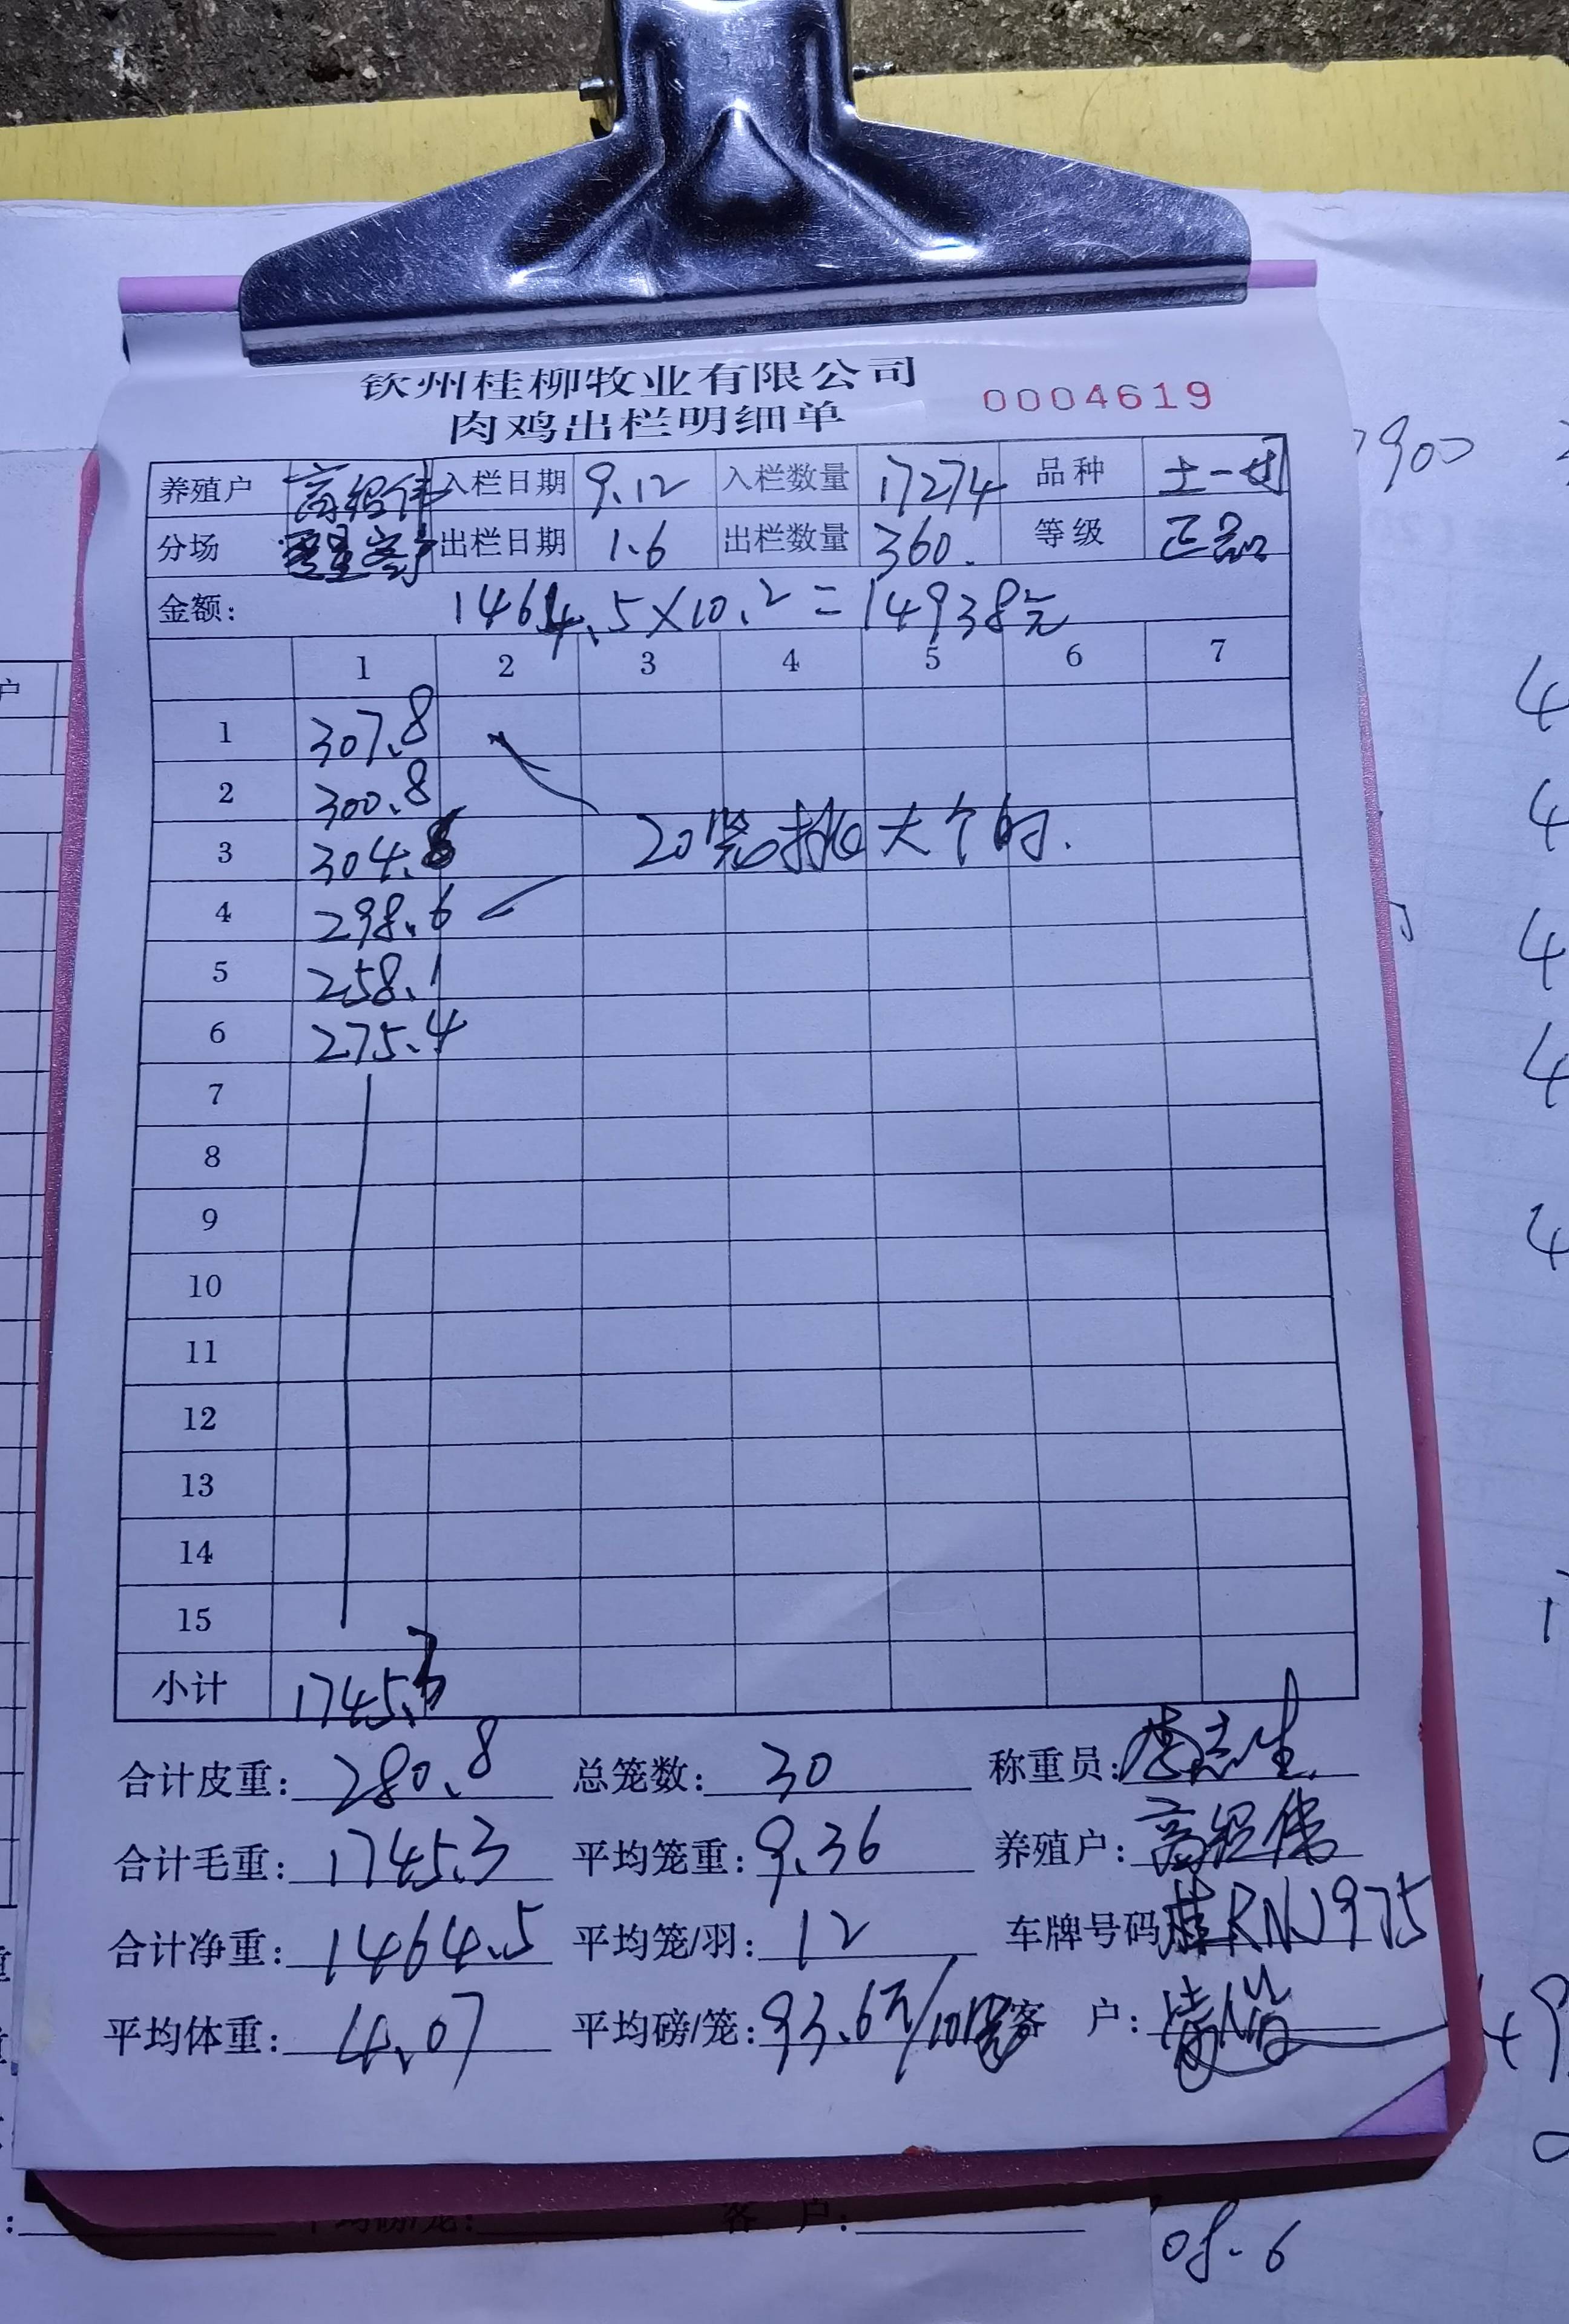 钦州桂柳牧业有限公司
肉鸡出栏明细单 0004619
养殖户 入栏日期 9.12 入栏数量 17274 品种 土一
分场 出栏日期 1.6 出栏数量 360. 等级 正品
金额: 1464.5×10.2=14938元
1 2 3 4 5 6 7
1 307.8
2 300.8
3 304.6
20笼挑大个的.
4 298.6
5 258.1
6 275.4
7
8
9
10
11
12
13
14
15
小计 1745.3
合计皮重: 280.8 总笼数: 30 称重员:
合计毛重: 1745.3 平均笼重: 9.36 养殖户:
合计净重: 1464.5 平均笼/羽: 12 车牌号码 桂RNJ975
平均体重: 4.07 平均磅/笼: 93.6斤/10笼 客 户:
客 户:
08.6